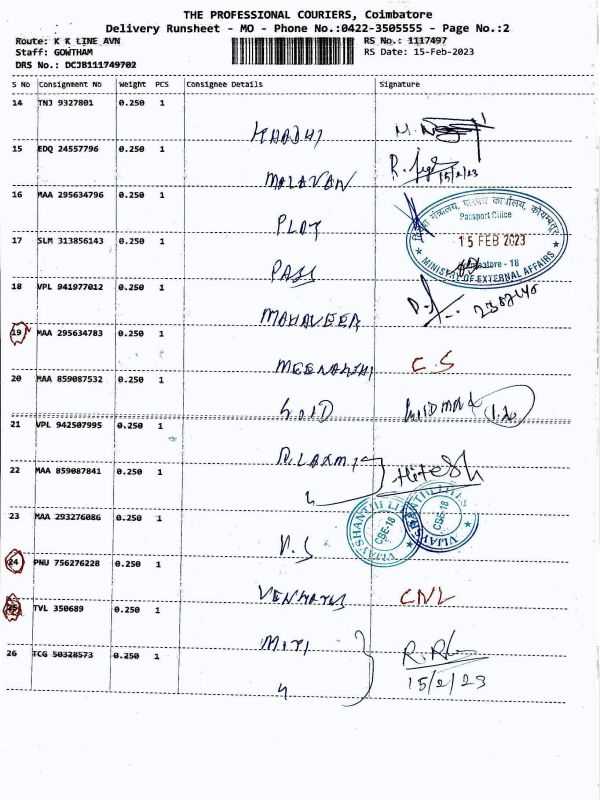 THE PROFESSIONAL COURIERS, Coimbatore
Delivery Runsheet - MO - Phone No.:0422-3505555 - Page No.:2
Route: K K LINE AVN
RS No.: 1117497
Staff: GOWTHAM
RS Date: 15-Feb-2023
DRS No.: DCJB111749702
S No Consignment No Weight PCS Consignee Details Signature
14 TNJ 9327801 0.250 1
KHADHI
15 EDQ 24557796 0.250 1
15/2/23
MALAVAN
16 MAA 295634796 0.250 1
विदेश मंत्रालय, पासपोर्ट कार्यालय, कोयम्बतूर
Passport Office
PLOT
17 SLM 313856143 0.250 1
15 FEB 2023
Coimbatore - 18
MINISTRY OF EXTERNAL AFFAIRS
PASS
18 VPL 941977012 0.250 1
MAHAVEER
19 MAA 295634783 0.250 1
MEENAKSHI C.S
20 MAA 859087532 0.250 1
GOLD
21 VPL 942507995 0.250 1
N. LAXMI
22 MAA 859087841 0.250 1
Hitesh
23 MAA 293276086 0.250 1
VIJAY SHANTHI
CBE-18
CBE-18
V.S
24 PNU 756276228 0.250 1
CNL
25 TVL 350689 0.250 1
MITI
26 TCG 50328573 0.250 1
15/2/23